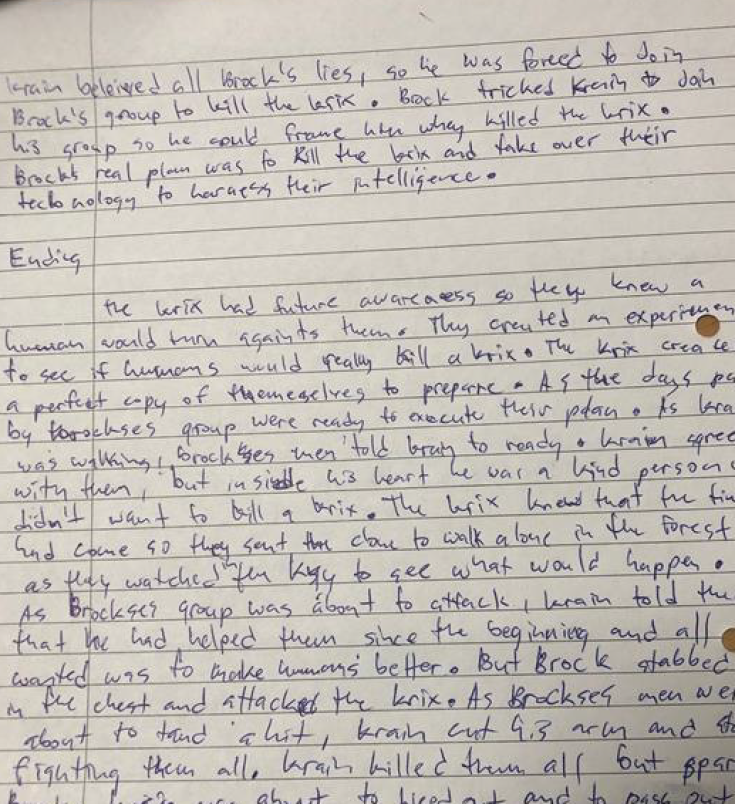 krain beleived all Brock's lies, so he was forced to Join
Brock's group to kill the krix. Brock tricked Krain to Join
his group so he could frame him whey killed the krix.
Brock's real plan was to kill the krix and take over their
technology to harness their intelligence.
Ending
the krix had future awareness so they knew a
human would turn againts them. They created an experimen
to see if humans would really kill a krix. The krix create
a perfect copy of themeselves to prepare. As the days pa
by brockses group were ready to execute their plan. As kra
was walking, brockses men told krain to ready. krain agree
with them, but inside his heart he was a kind person
didn't want to kill a krix. The krix knew that the tim
had come so they sent the clone to walk alone in the forest
as they watched to see what would happen.
As Brockses group was about to attack, krain told the
that he had helped them since the beginning and all
wanted was to make humans better. But Brock stabbed
in the chest and attacked the krix. As Brockses men we
about to land a hit, krain cut his arm and sta
fighting them all. krain killed them all but spar
about to bleed out and to pass out